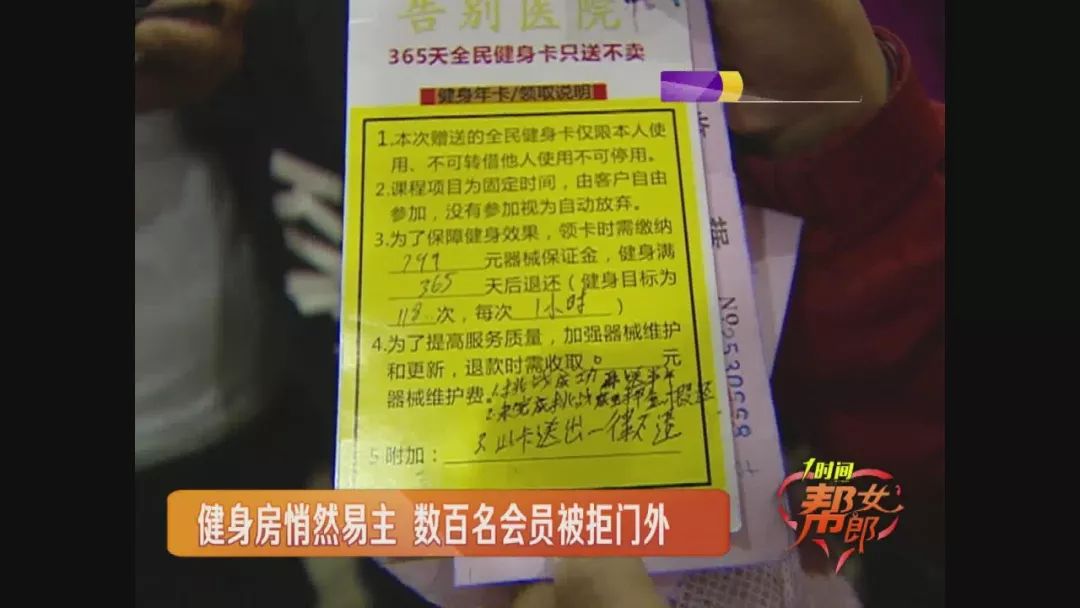 告别医院
365天全民健身卡只送不卖
健身年卡/领取说明
1.本次赠送的全民健身卡仅限本人使
用、不可转借他人使用不可停用。
2.课程项目为固定时间，由客户自由
参加，没有参加视为自动放弃。
3.为了保障健身效果，领卡时需缴纳
799 元器械保证金，健身满
365 天后退还（健身目标为
118次，每次 1小时 ）
4.为了提高服务质量，加强器械维护
和更新，退款时需收取 0 元
器械维护费。1.挑战成功再送半年
2.未完成挑战 押金 退还
3.此卡送出一律不退
5.附加：
据
№2530558
1时间
帮女郎
健身房悄然易主 数百名会员被拒门外